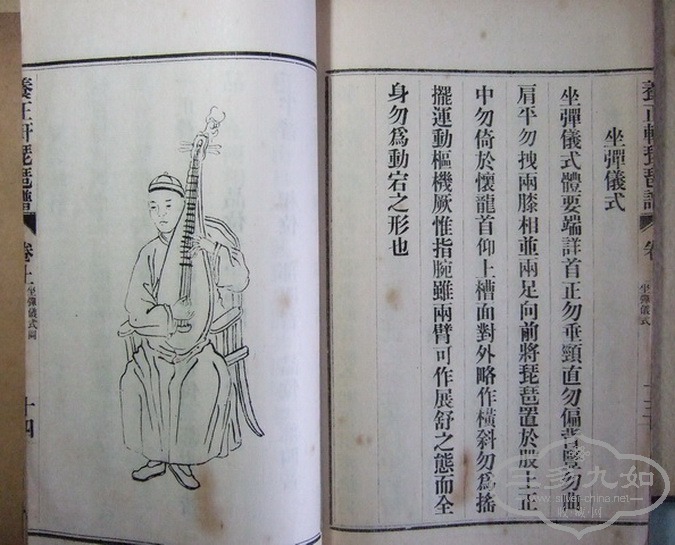 養正軒琵琶譜
卷
坐彈儀式
坐彈儀式
坐彈儀式體要端詳首正勿垂頸直勿偏背豎勿
肩平勿拽兩膝相並兩足向前將琵琶置於股上正
中勿倚於懷龍首仰上槽面對外略作橫斜勿為搖
擺運動樞機厥惟指腕雖兩臂可作展舒之態而全
身勿為動宕之形也
養正軒琵琶譜
卷上
坐彈儀式圖
十四
三多九如
www.silver-china.net
收藏网